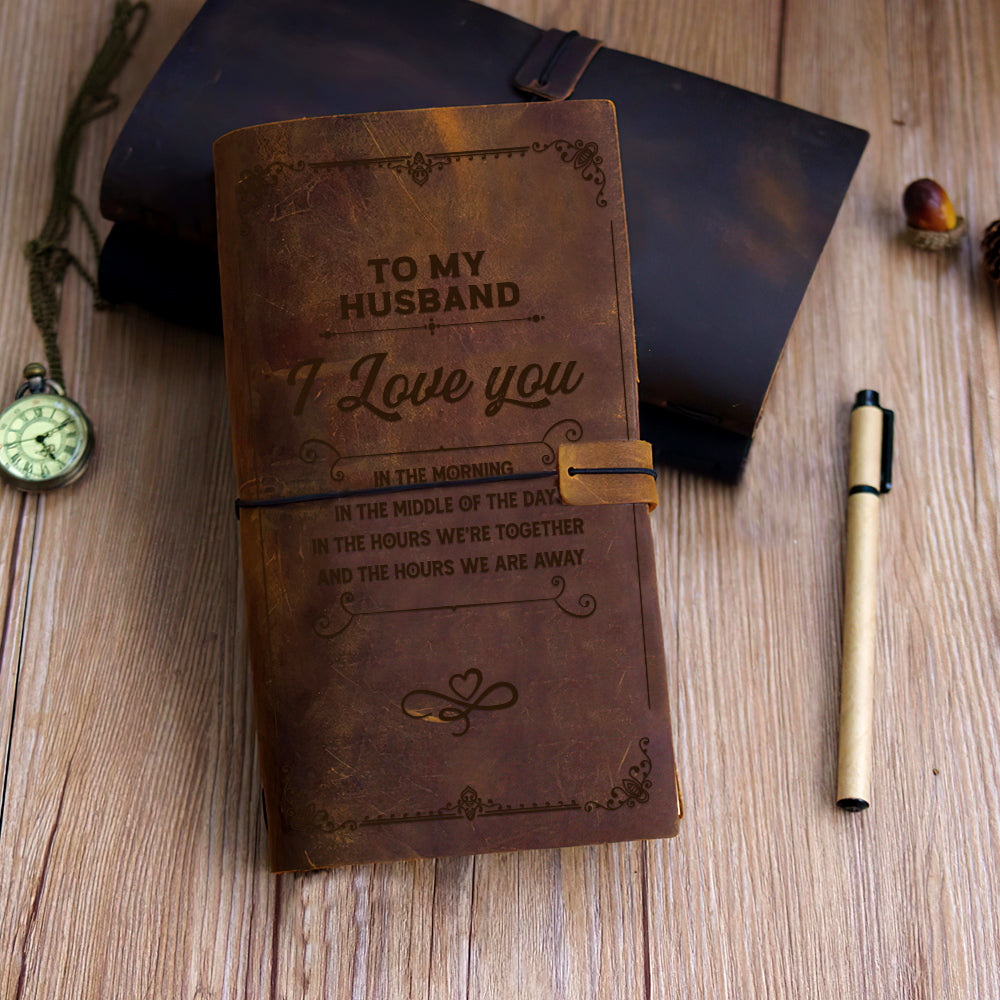 TO MY
HUSBAND
I Love you
IN THE MORNING
IN THE MIDDLE OF THE DAY
IN THE HOURS WE'RE TOGETHER
AND THE HOURS WE ARE AWAY